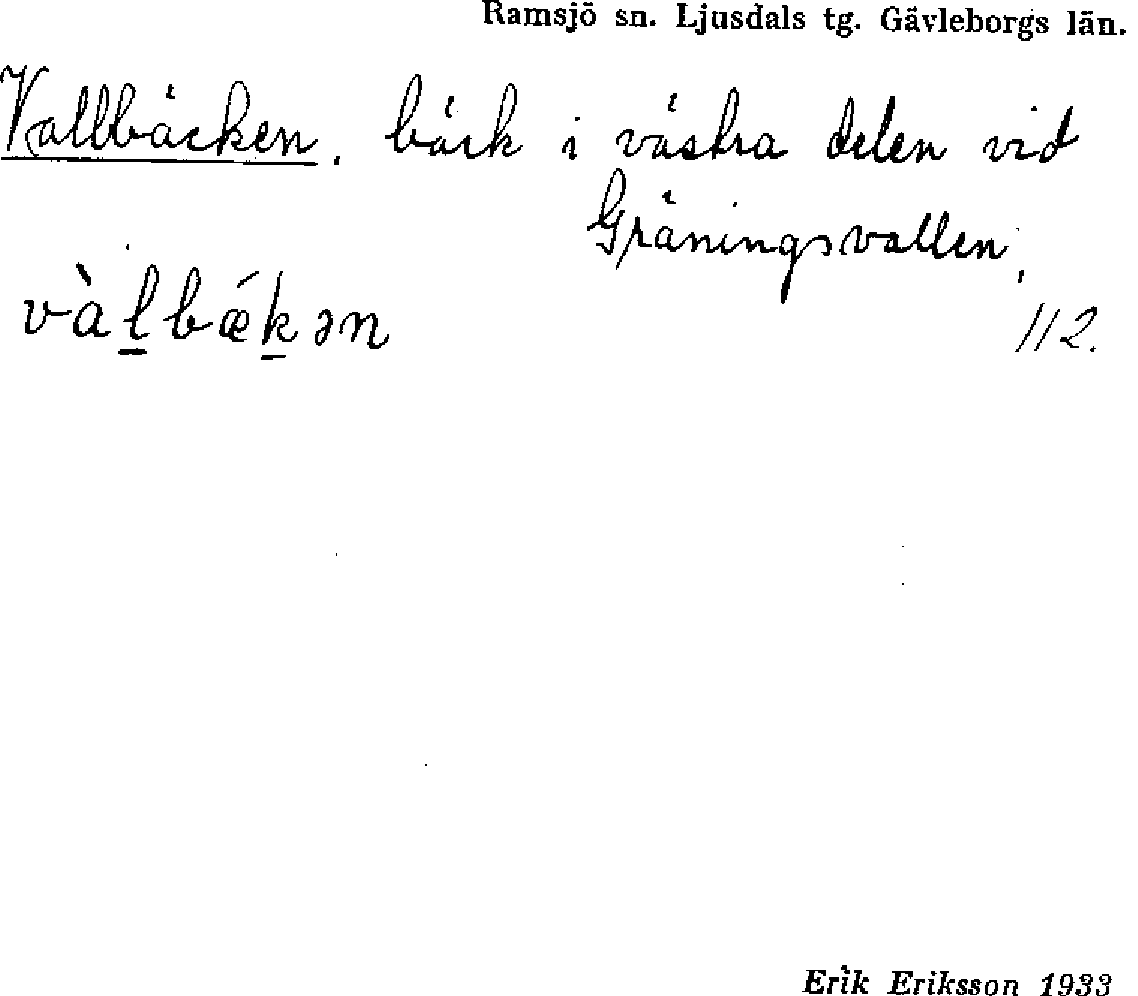 Ramsjö sn. Ljusdals tg. Gävleborgs län.
Vallbäcken. bäck i västra delen vid
Gräningsvallen,
vàl̲bǽk̲ən
112.
Erik Eriksson 1933